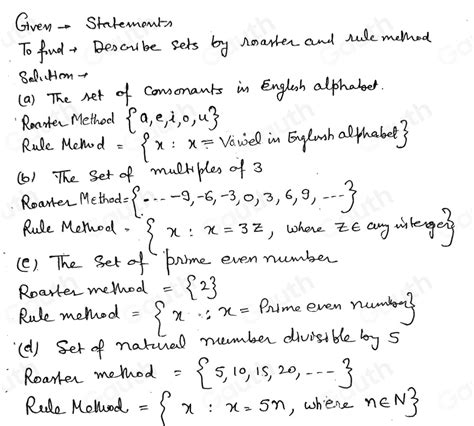 Given → Statements
To find → Describe sets by roaster and rule method
Solution →
(a) The set of consonants in English alphabet.
Roaster Method {a, e, i, o, u}
Rule Method = {x : x = Vowel in English alphabet}
(b) The Set of multiples of 3
Roaster Method = {---- -9, -6, -3, 0, 3, 6, 9, ---}
Rule Method - {x : x = 3Z, where Z ∈ any interger}
(c) The Set of prime even number
Roaster method = {2}
Rule method = {x : x = Prime even number}
(d) Set of natural number divisible by 5
Roaster method = {5, 10, 15, 20, ----}
Rule Method = {x : x = 5n, where n ∈ N}